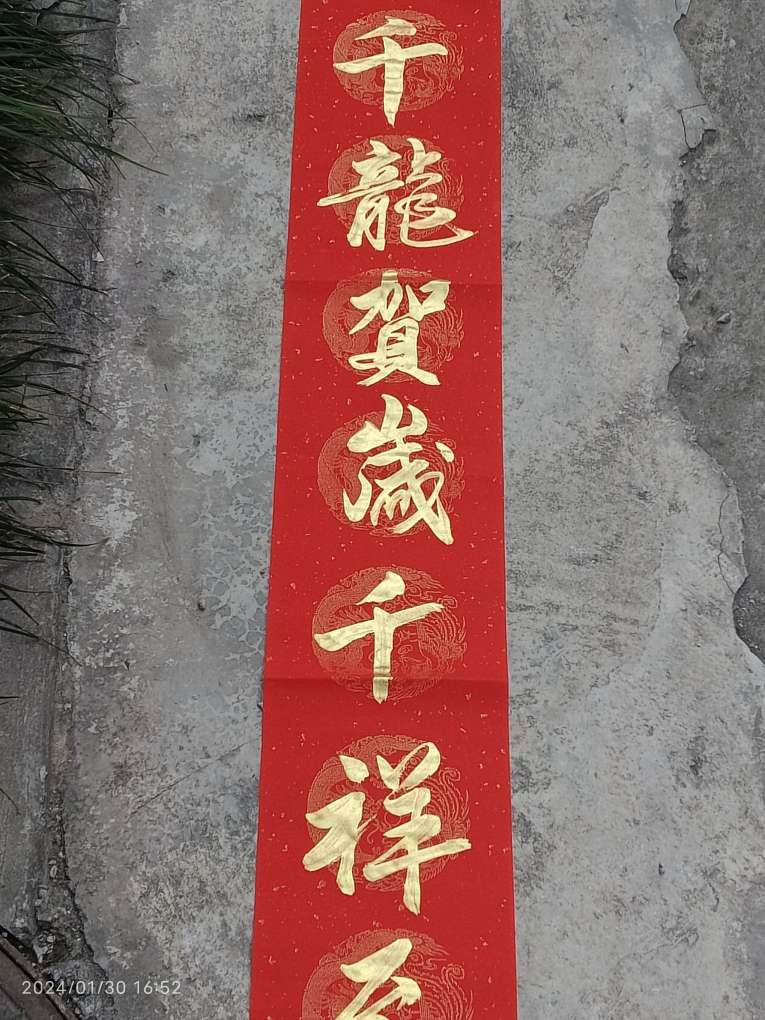 千龍賀歲千祥至
2024/01/30 16:52